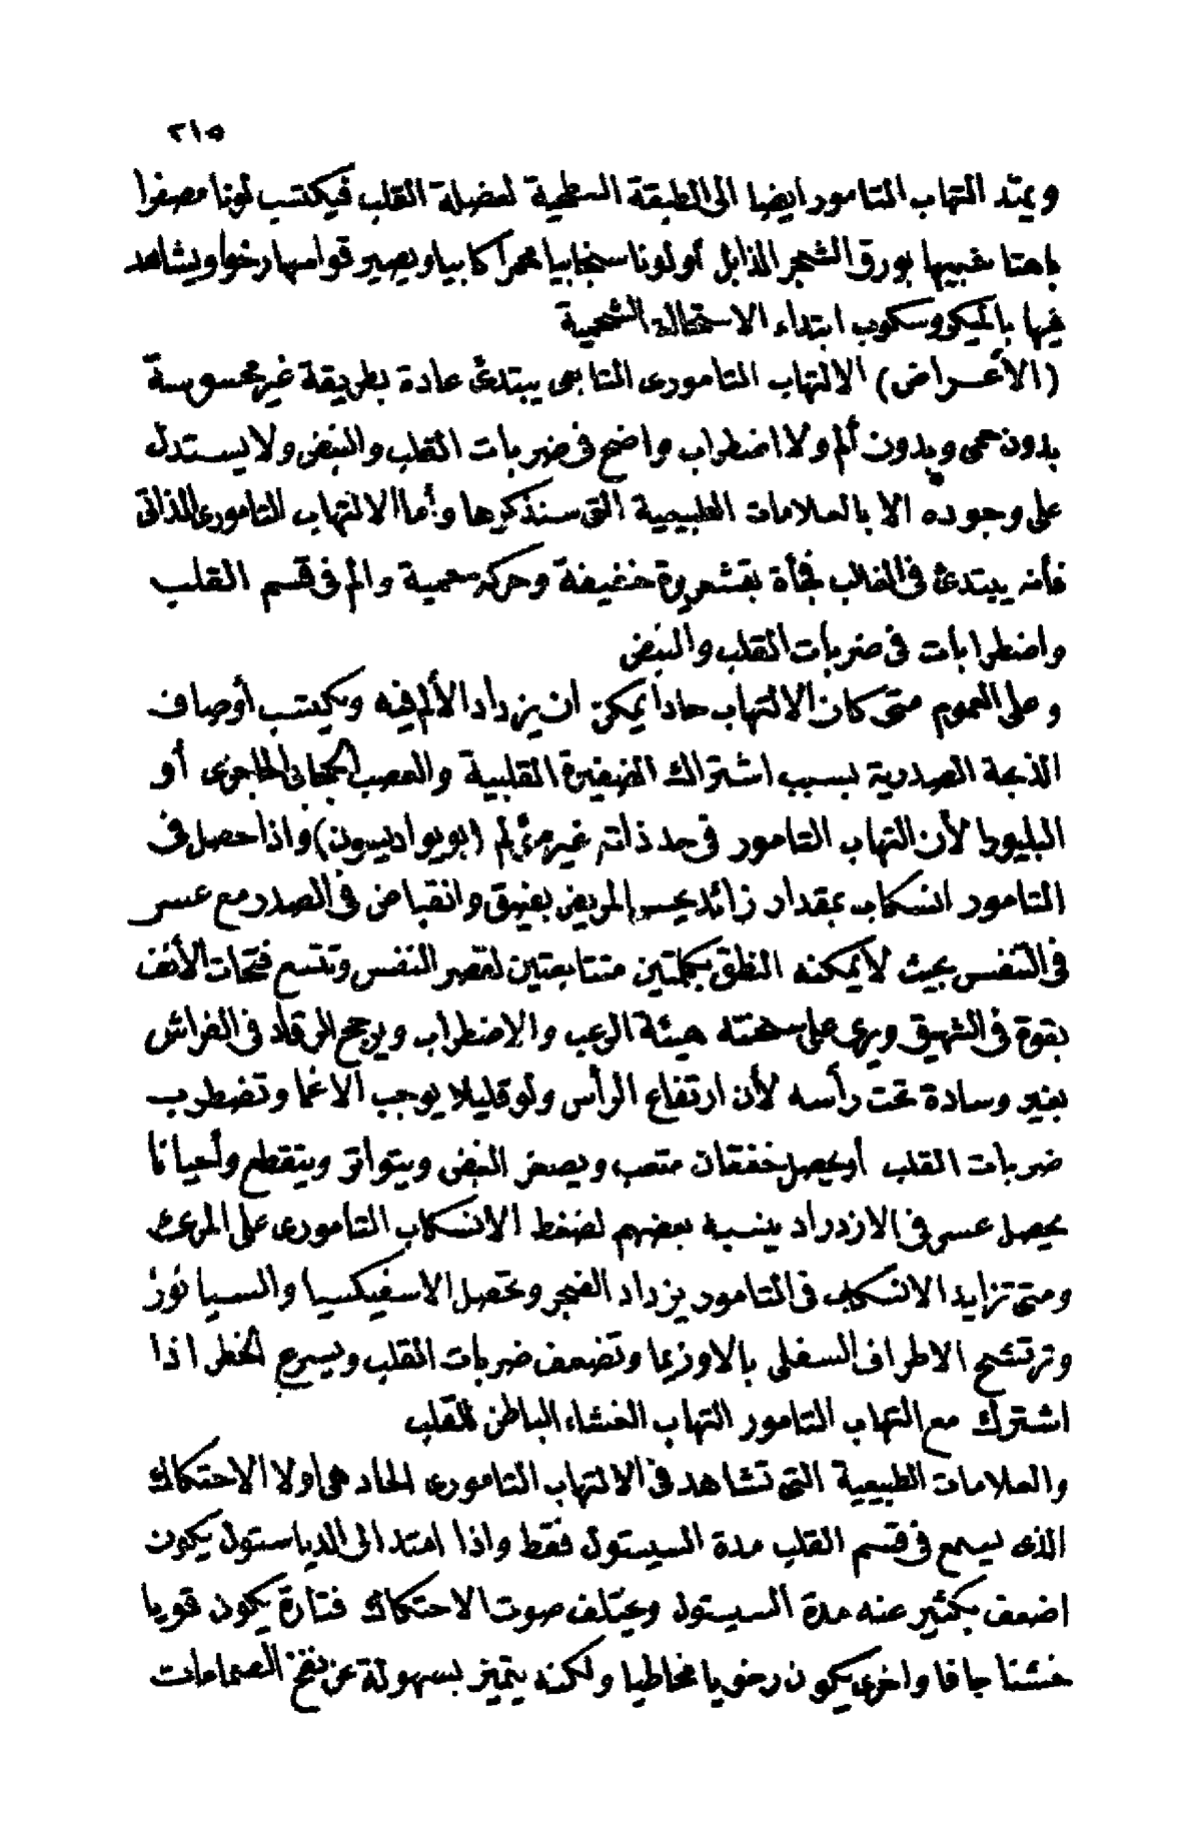 ٢١٥
ويمتد التهاب التامور ايضا الى الطبقة السطحية لعضلة القلب فيكتسب لونا مصفرا
باهتا شبيها بورق الشجر الذابل أو لونا سنجابيا محمرا كابيا ويصير قوامها رخوا ويشاهد
فيها بالميكروسكوب ابتداء الاستحالة الشحمية
(الأعــراض) الالتهاب التامورى التابعى يبتدئ عادة بطريقة غير محسوسة
بدون حمى وبدون ألم ولا اضطراب واضح فى ضربات القلب والنبض ولا يستدل
على وجوده الا بالعلامات الطبيعية التى سنذكرها وأما الالتهاب التامورى الذاتى
فأنه يبتدئ فى الغالب فجأة بقشعريرة خفيفة وحركة حمية والم فى قسم القلب
واضطرابات فى ضربات القلب والنبض
وعلى العموم متى كان الالتهاب حادا يمكن ان يزداد الألم فيه ويكتسب أوصاف
الذبحة الصدرية بسبب اشتراك الضفيرة القلبية والعصب الحجابى الحاجزى أو
البليورا لأن التهاب التامور فى حد ذاته غير مؤلم (بويو اديسون) واذا حصل فى
التامور انسكاب بمقدار زائد يحس المريض بضيق وانقباض فى الصدر مع عسر
فى التنفس بحيث لا يمكنه النطق بكلمتين متتابعتين لقصر النفس وتتسع فتحات الأنف
بقوة فى الشهيق ويرى على سحنته هيئة الرعب والاضطراب ويرجح الرقاد فى الفراش
بغير وسادة تحت رأسه لأن ارتفاع الرأس ولو قليلا يوجب الاغما وتضطرب
ضربات القلب أو يحصل خفقان متعب ويصغر النبض ويتواتر ويتقطع وأحيانا
يحصل عسر فى الازدراد ينسبه بعضهم لضغط الانسكاب التامورى على المرئ
ومتى تزايد الانسكاب فى التامور يزداد الضجر وتحصل الاسفيكسيا والسيانوز
وترتشح الاطراف السفلى بالاوزيما وتضعف ضربات القلب ويسرع الخطر اذا
اشترك مع التهاب التامور التهاب الغشاء الباطن للقلب
والعلامات الطبيعية التى تشاهد فى الالتهاب التامورى الحاد هى اولا الاحتكاك
الذى يسمع فى قسم القلب مدة السيستول فقط واذا امتد الى الدياستول يكون
اضعف بكثير عنه مدة السيستول ويختلف صوت الاحتكاك فتارة يكون قويا
خشنا جافا واخرى يكون رخويا مخاطيا ولكنه يتميز بسهولة عن نفخ الصمامات